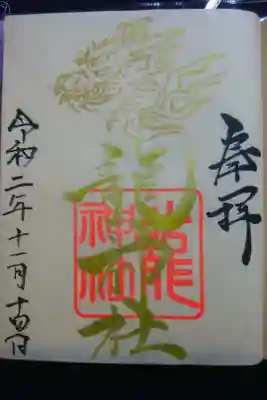 奉拝
龍社
龍
神社
令和二年十一月十四日